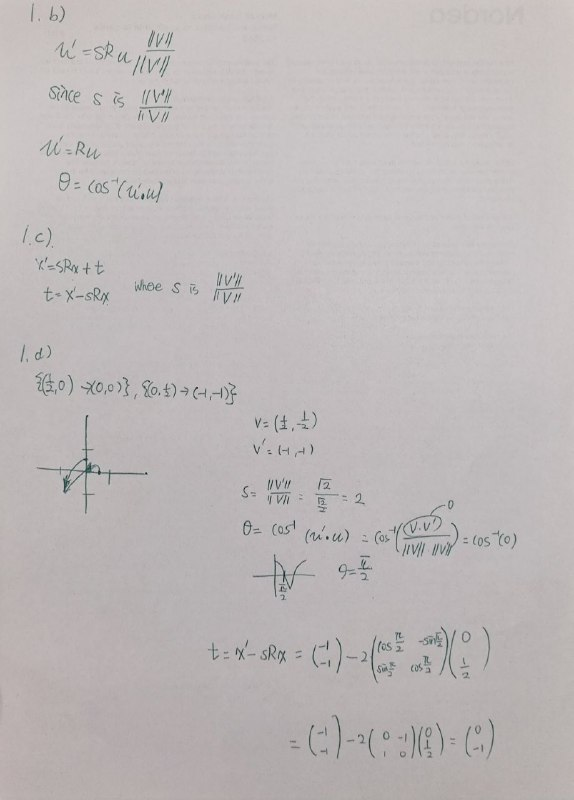 1.b)
u' = sRu ||V|| / ||V'||
since s is ||V'|| / ||V||
u' = Ru
θ = cos⁻¹(u'•u)
1.c)
x' = sRx + t
t = x' - sRx where s is ||V'|| / ||V||
1.d)
{(1/2, 0) → (0,0)}, {(0, 1/2) → (-1,-1)}
V = (1/2, -1/2)
V' = (-1, -1)
s = ||V'|| / ||V|| = √2 / (√2/2) = 2
0
θ = cos⁻¹(u'•u) = cos⁻¹( V·V' / ||V|| ||V'|| ) = cos⁻¹(0)
π/2
θ = π/2
t = x' - sRx = (-1 -1) - 2 (cos π/2 -sin π/2 sin π/2 cos π/2) (0 1/2)
= (-1 -1) - 2 (0 -1 1 0) (0 1/2) = (0 -1)